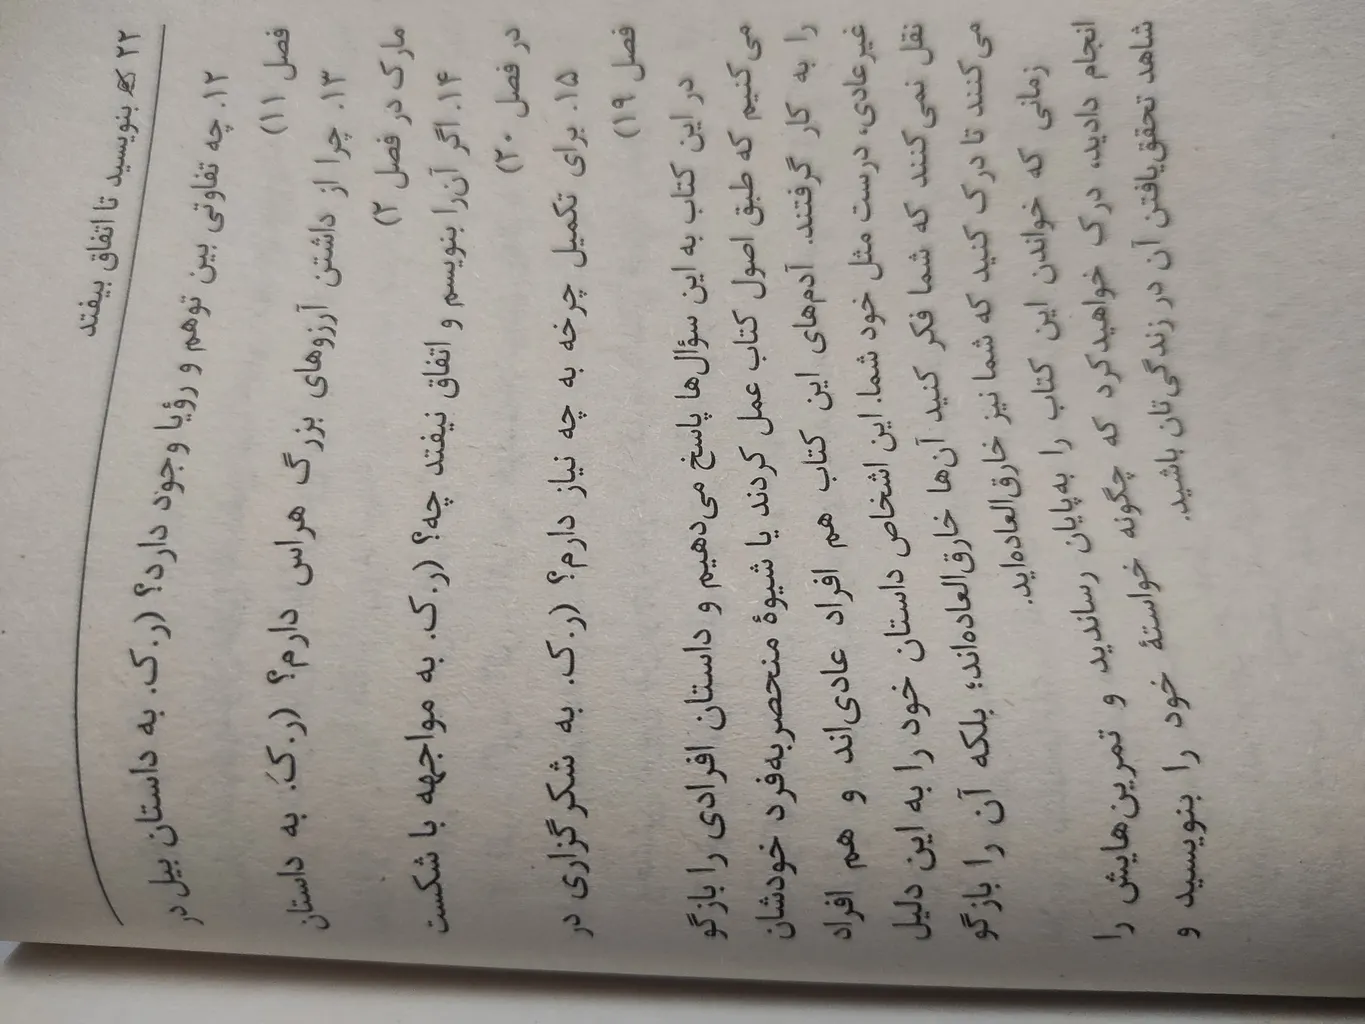 ۲۲ بنویسید تا اتفاق بیفتد
۱۲. چه تفاوتی بین توهم و رؤیا وجود دارد؟ (ر.ک. به داستان بیل در
فصل ۱۱)
۱۳. چرا از داشتن آرزوهای بزرگ هراس دارم؟ (ر.ک. به داستان
مارک در فصل ۲)
۱۴. اگر آن‌را بنویسم و اتفاق نیفتد چه؟ (ر.ک. به مواجهه با شکست
در فصل ۲۰)
۱۵. برای تکمیل چرخه به چه نیاز دارم؟ (ر.ک. به شکرگزاری در
فصل ۱۹)
در این کتاب به این سؤال‌ها پاسخ می‌دهیم و داستان افرادی را بازگو
می‌کنیم که طبق اصول کتاب عمل کردند یا شیوهٔ منحصربه‌فرد خودشان
را به کار گرفتند. آدم‌های این کتاب هم افراد عادی‌اند و هم افراد
غیرعادی، درست مثل خود شما. این اشخاص داستان خود را به این دلیل
نقل نمی‌کنند که شما فکر کنید آن‌ها خارق‌العاده‌اند؛ بلکه آن را بازگو
می‌کنند تا درک کنید که شما نیز خارق‌العاده‌اید.
زمانی که خواندن این کتاب را به‌پایان رساندید و تمرین‌هایش را
انجام دادید، درک خواهیدکرد که چگونه خواستهٔ خود را بنویسید و
شاهد تحقق‌یافتن آن در زندگی‌تان باشید.